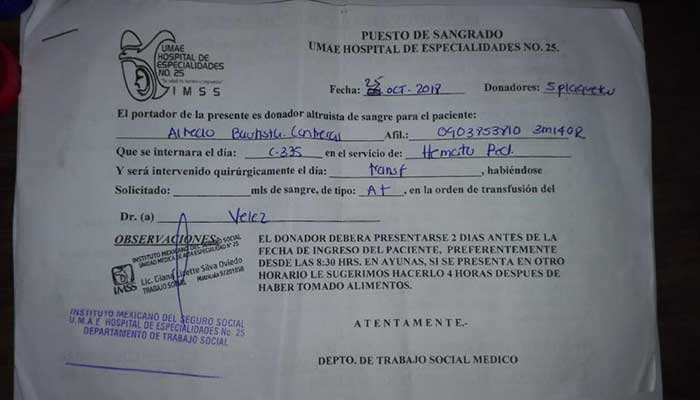 UMAE
HOSPITAL DE
ESPECIALIDADES
NO. 25
IMSS
PUESTO DE SANGRADO
UMAE HOSPITAL DE ESPECIALIDADES NO. 25.
Fecha: 25 OCT. 2018 Donadores: 5 plaquetas
El portador de la presente es donador altruista de sangre para el paciente:
Alfredo Bautista Contreras Afil.: 0903853810 3m14OR
Que se internara el día: C-335 en el servicio de: Hemato Ped.
Y será intervenido quirúrgicamente el día: transf, habiéndose
Solicitado: mls de sangre, de tipo: A+, en la orden de transfusión del
Dr. (a) Velez
OBSERVACIONES: EL DONADOR DEBERA PRESENTARSE 2 DIAS ANTES DE LA
FECHA DE INGRESO DEL PACIENTE, PREFERENTEMENTE
DESDE LAS 8:30 HRS. EN AYUNAS, SI SE PRESENTA EN OTRO
HORARIO LE SUGERIMOS HACERLO 4 HORAS DESPUES DE
HABER TOMADO ALIMENTOS.
INSTITUTO MEXICANO DEL SEGURO SOCIAL
UNIDAD MEDICA DE ALTA ESPECIALIDAD N° 25
Lic. Diana Lizette Silva Oviedo
TRABAJO SOCIAL Matrícula 97201858
IMSS
INSTITUTO MEXICANO DEL SEGURO SOCIAL
U.M.A.E HOSPITAL DE ESPECIALIDADES No. 25
DEPARTAMENTO DE TRABAJO SOCIAL
A T E N T A M E N T E.-
DEPTO. DE TRABAJO SOCIAL MEDICO